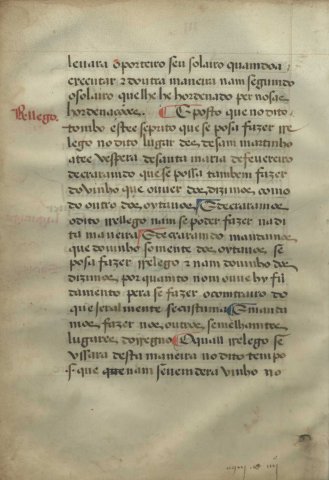 leuara o porteiro seu solairo quando a
executar E doutra maneira nam segundo
o solairo que lhe he hordenado per nosas
hordenaçoões. E posto que no dito
Rellego.
tombo estee sepríto que se posa fazer rre
lego no dito lugar des sam martinho
atee vespera de santa maria de feuereiro
decraramdo que se possa tambem fazer
do vinho que ouuer dos dizimos como
do outro dos oytauos. E decraramos
o dito rrellego nam se poder fazer na di
ta maneira E decraramdo mandamos
que do vinho somente dos oytauos se
posa fazer rrelego E nam do vinho dos
dizimos por quanto nom ouue hy fũ
damento pera se fazer o comtrairo do
que jeralmente se custuma E manda
mos fazer nos outros semelhantes
lugares do regno E o qual rrelego se
vssara desta maneira no dito tempo
s. que nam se vendera vinho no